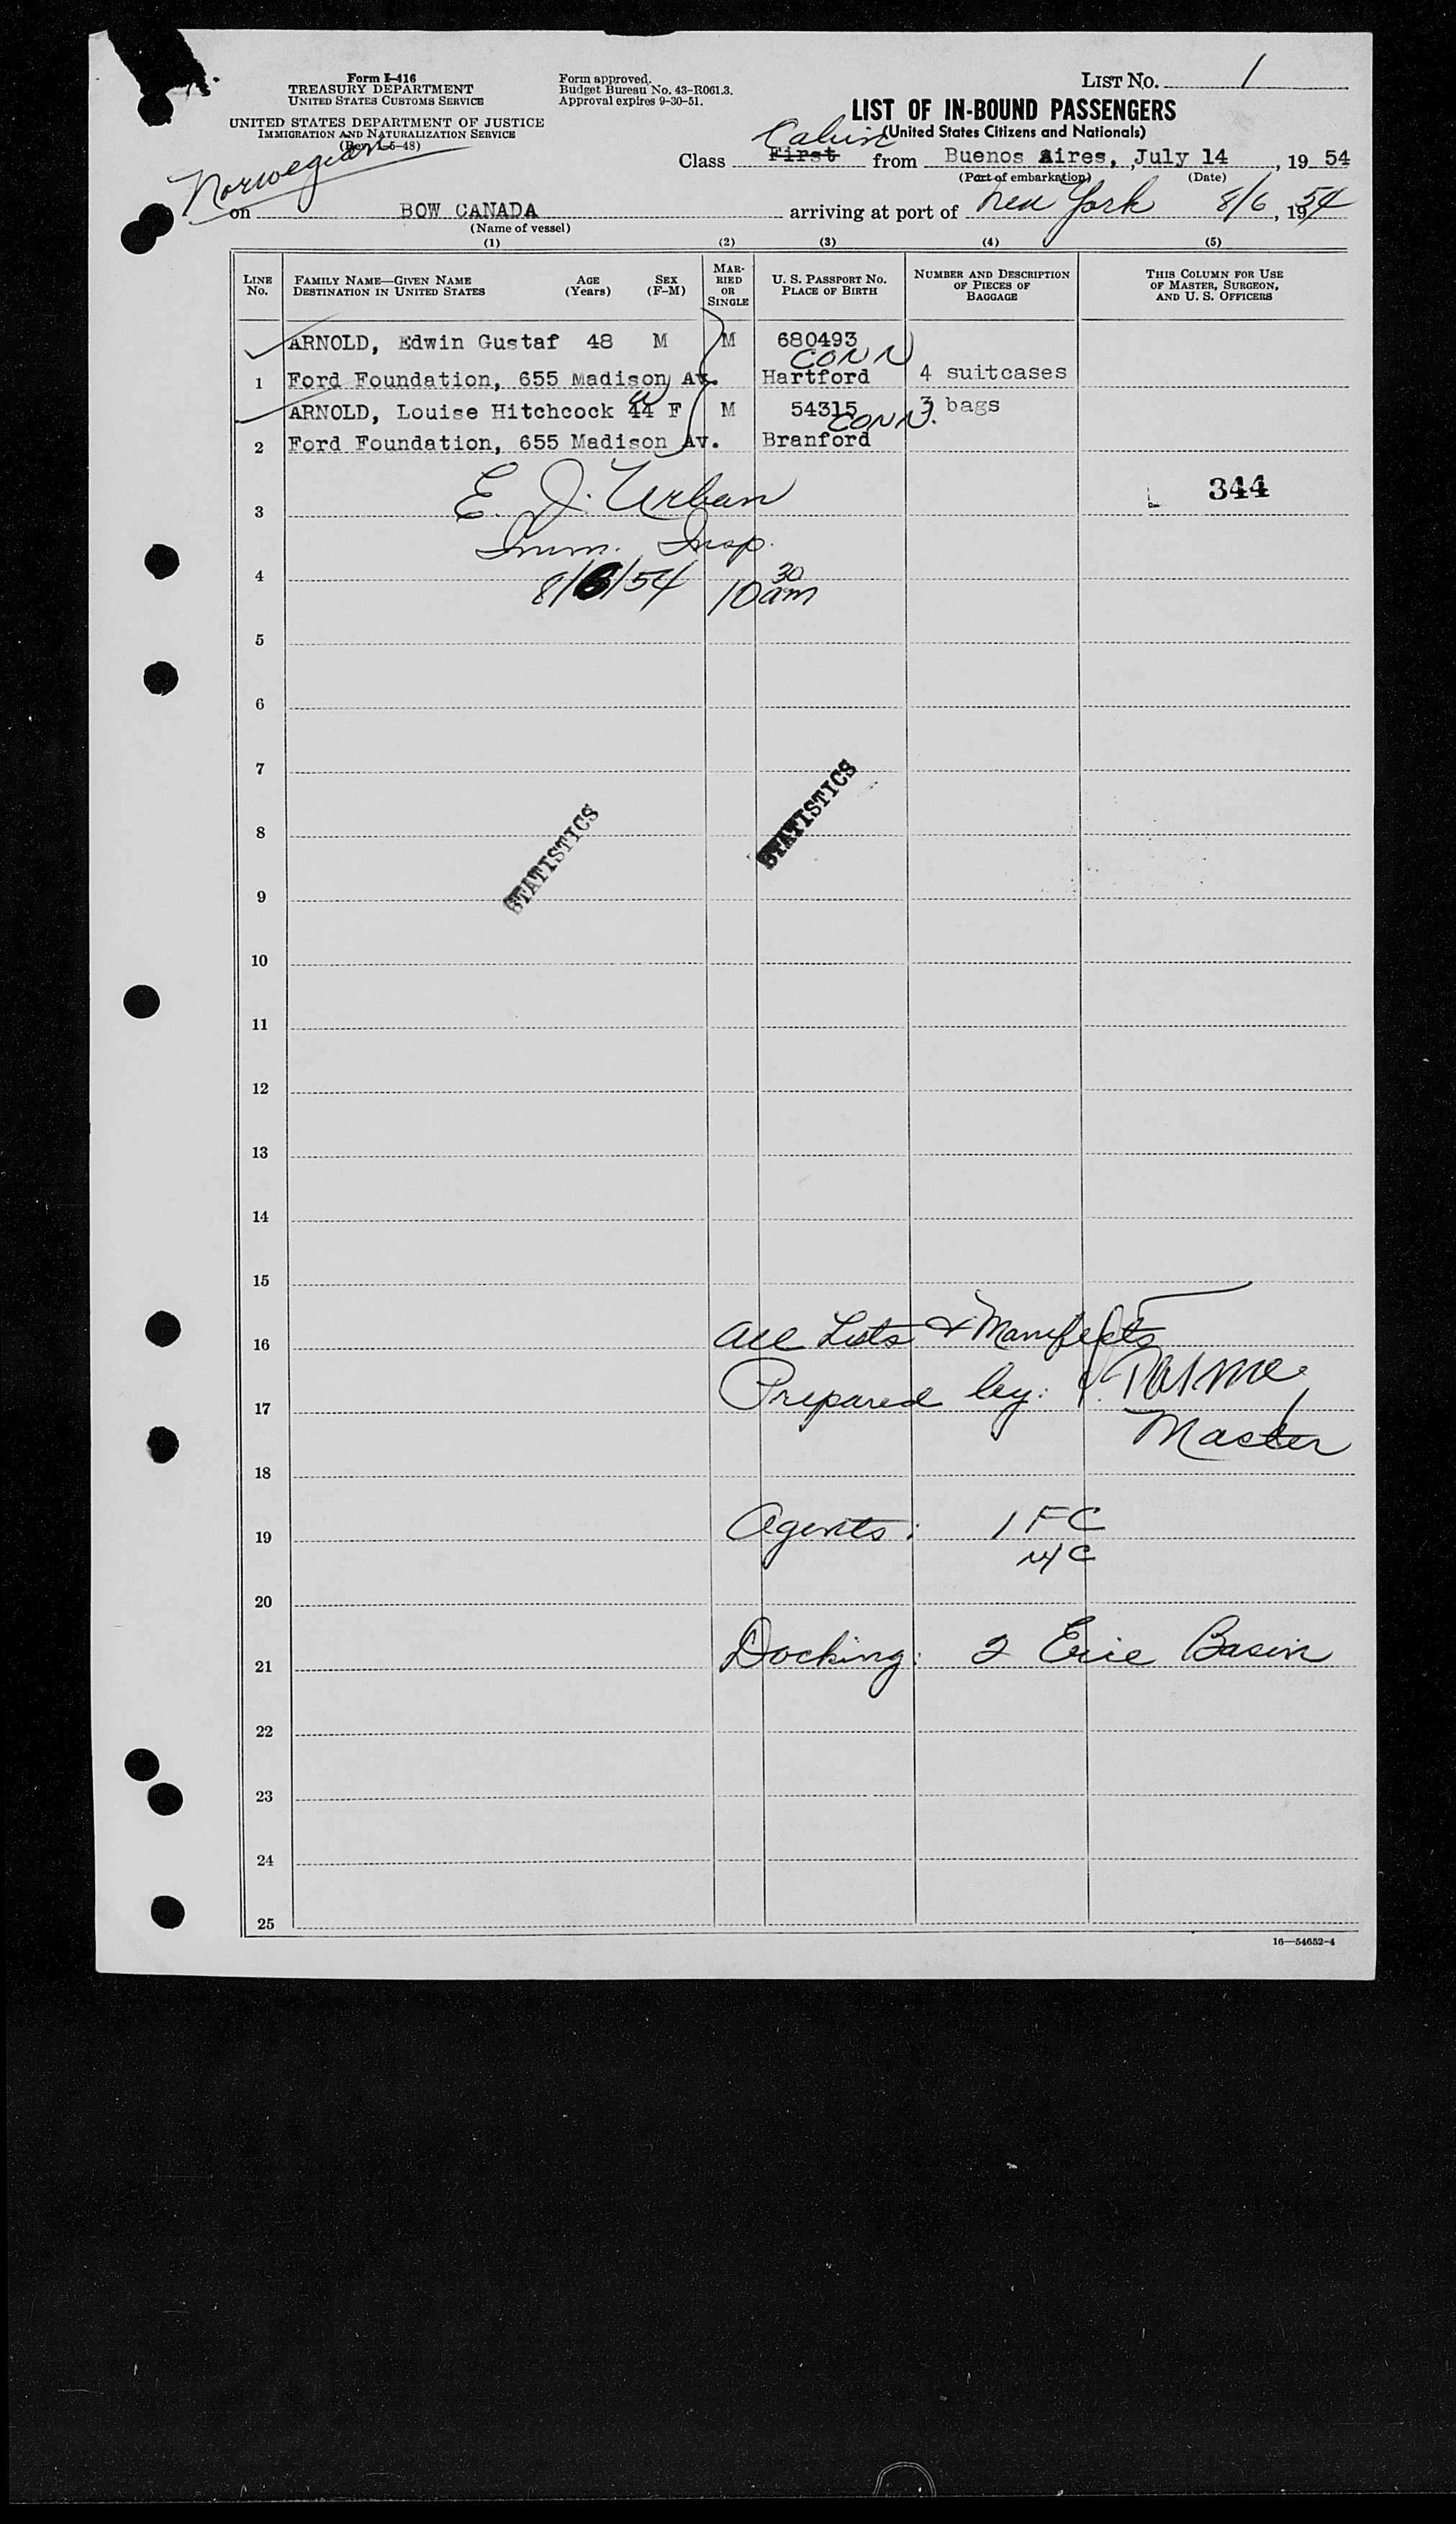 Form I-416
TREASURY DEPARTMENT
UNITED STATES CUSTOMS SERVICE
UNITED STATES DEPARTMENT OF JUSTICE
IMMIGRATION AND NATURALIZATION SERVICE
Norwegian
Form approved.
Budget Bureau No. 43-R061.3.
Approval expires 9-30-51.
LIST NO. 1
LIST OF IN-BOUND PASSENGERS
(United States Citizens and Nationals)
Cabin
Class First from Buenos Aires, , July 14 , 19 54
(Port of embarkation) (Date)
on BOW CANADA arriving at port of New York 8/6 , 1954
(Name of vessel)
(1) (2) (3) (4) (5)
LINE No. FAMILY NAME—GIVEN NAME DESTINATION IN UNITED STATES AGE (Years) SEX (F-M) MARRIED OR SINGLE U. S. PASSPORT NO. PLACE OF BIRTH NUMBER AND DESCRIPTION OF PIECES OF BAGGAGE THIS COLUMN FOR USE OF MASTER, SURGEON, AND U. S. OFFICERS
ARNOLD, Edwin Gustaf 48 M M 680493
CONN
1 Ford Foundation, 655 Madison Av. Hartford 4 suitcases
ARNOLD, Louise Hitchcock 44 F M 54315 3 bags
CONN.
2 Ford Foundation, 655 Madison Av. Branford
E. J. Urban 344
3
Imm. Insp.
4
8/6/54 10 30 am
5
6
7
STATISTICS
8
STATISTICS
9
10
11
12
13
14
15
16 All Lists & Manifests
17 Prepared by:
Master
18
19 Agents: IFC
20
21 Docking: 2 Erie Basin
22
23
24
25
16—54652-4